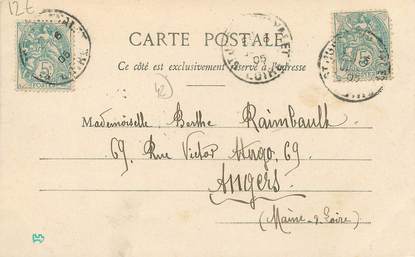 12€
CARTE POSTALE
Ce côté est exclusivement réservé à l'adresse
Mademoiselle Berthe Raimbault
69, Rue Victor Hugo, 69
Angers
(Maine-&-Loire)